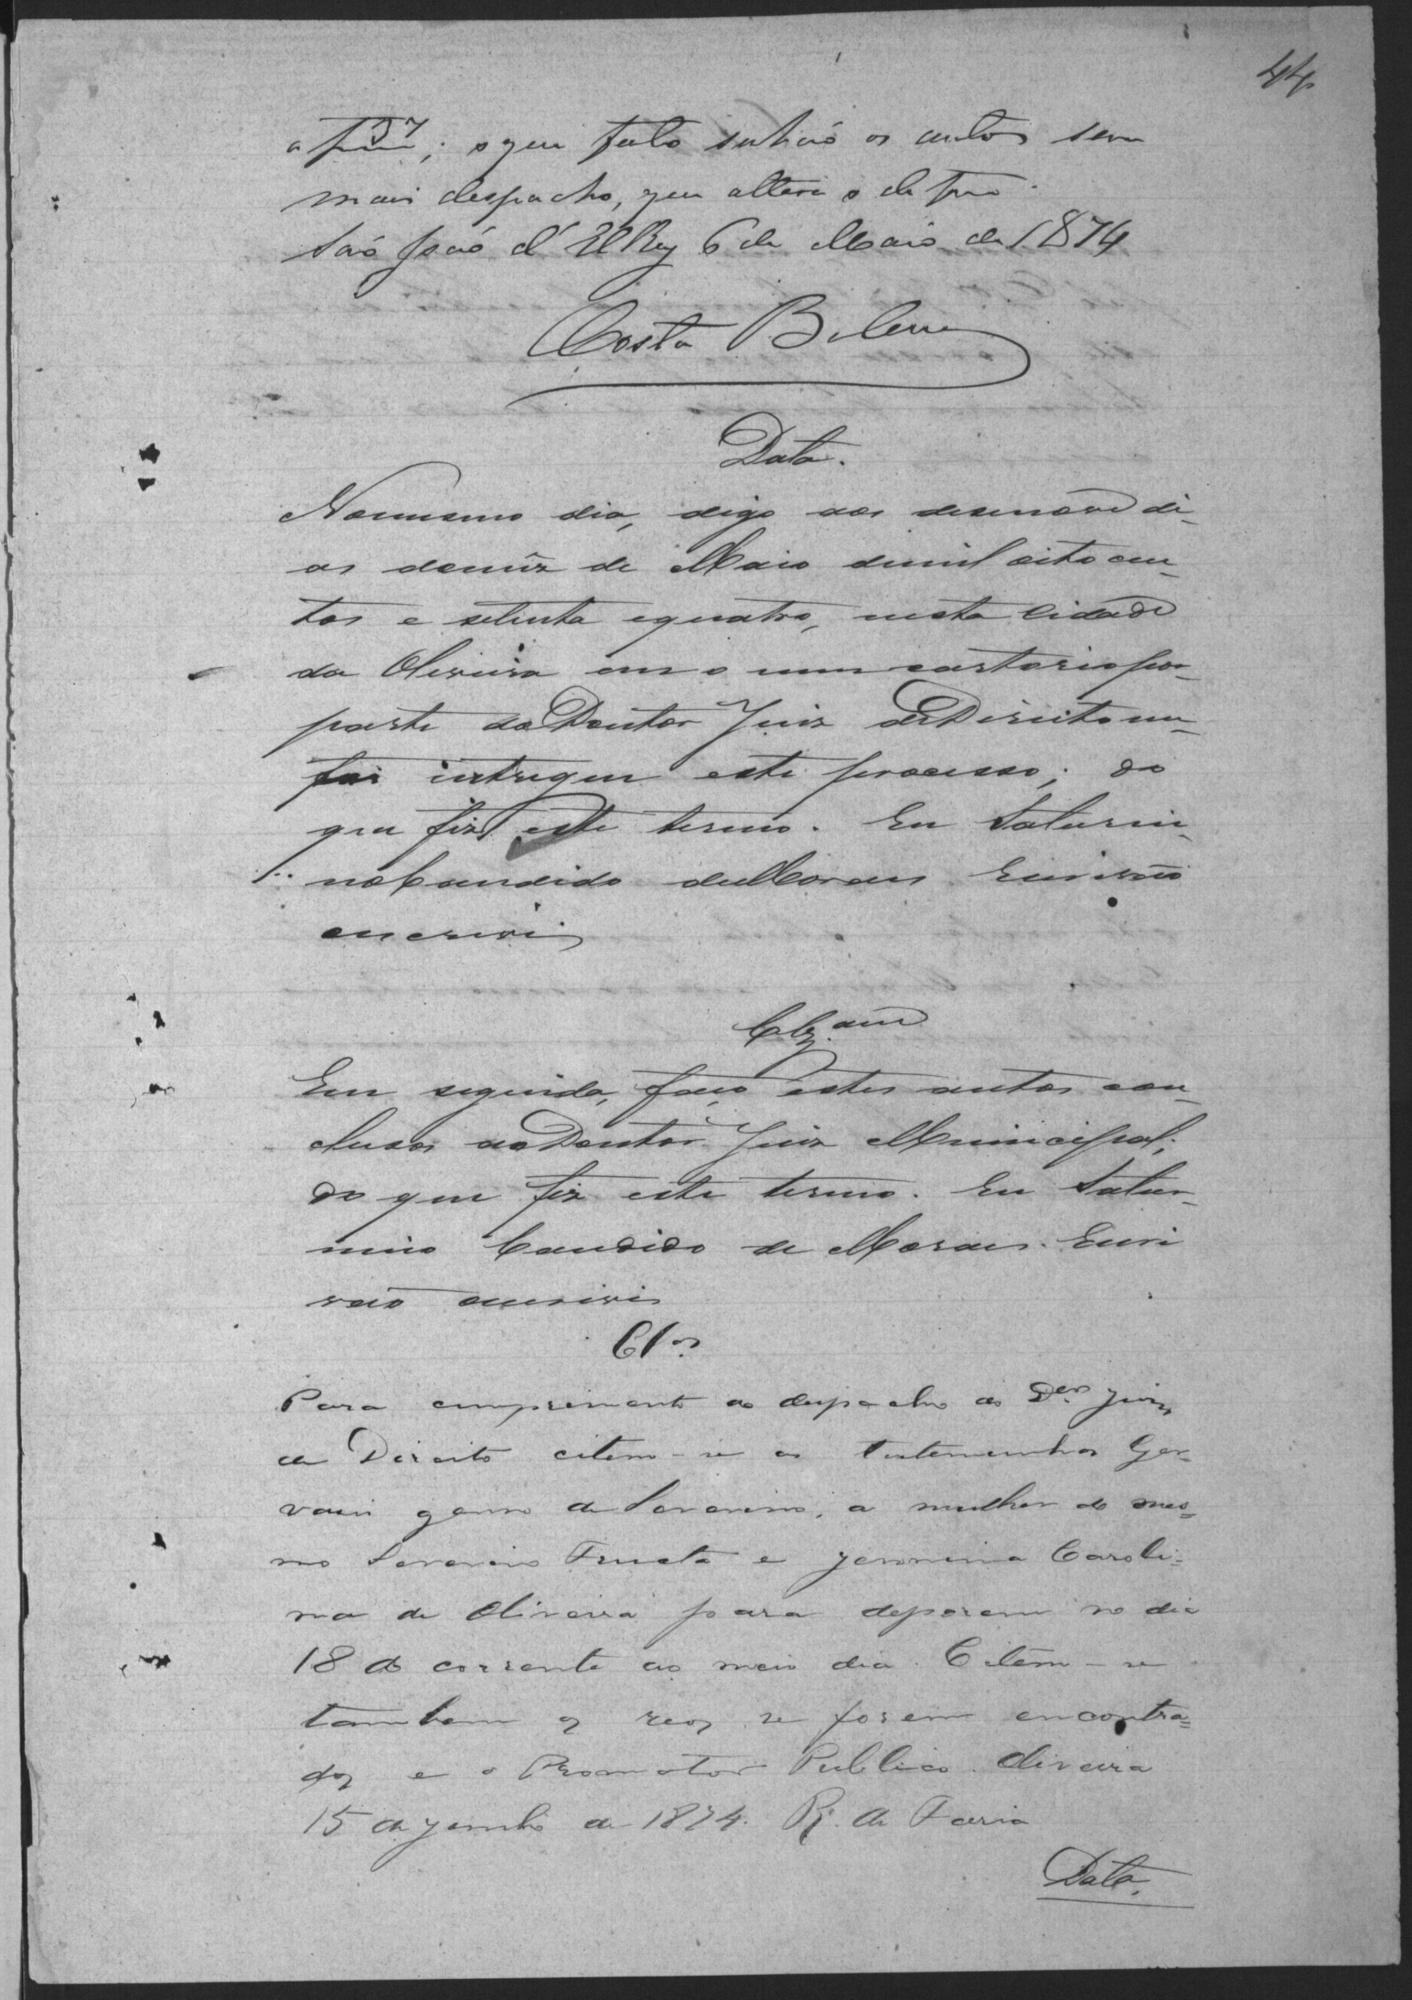 44
; o que feito subirão os autos sem
mais despacho, que altere o de
São João d'El Rey 6 de Maio de 1874
Costa Belem
Data.
No mesmo dia, digo aos desenove di-
as do mêz de Maio de mil oito cen-
tos e setenta e quatro, nesta Cidade
da Oliveira em o meu cartorio por
parte do Doutor Juiz de Direito me
foi intregue este processo; do
que fiz este termo. Eu Saturni-
no Candido de Moraes Escrivão
escrivi
Clz.am
Em seguida, faço estes autos con-
clusos ao Doutor Juiz Municipal;
do que fiz este termo. Eu Satur-
nino Candido de Moraes. Escri
vão escrivi
Clos
Para cumprimento do despacho do Dor Juiz
de Direito citem-se as testemunhas Ger-
vasio genro de Severino, a mulher do mes-
mo Severino Fructa e Jeronima Caroli-
na de Oliveira para deporem no dia
18 do corrente ao meio dia. Citem-se
tambem os reos se forem encontra-
dos e o Promotor Publico. Oliveira
15 de Junho de 1874. R. de Faria
Data.